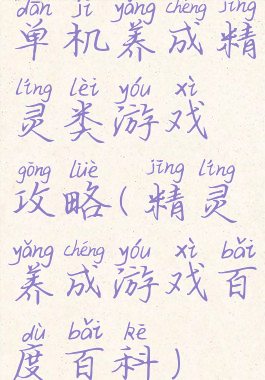 dān jī yǎng chéng jīng
单机养成精
líng lèi yóu xì
灵类游戏
gōng lüè jīng líng
攻略(精灵
yǎng chéng yóu xì bǎi
养成游戏百
dù bǎi kē
度百科)